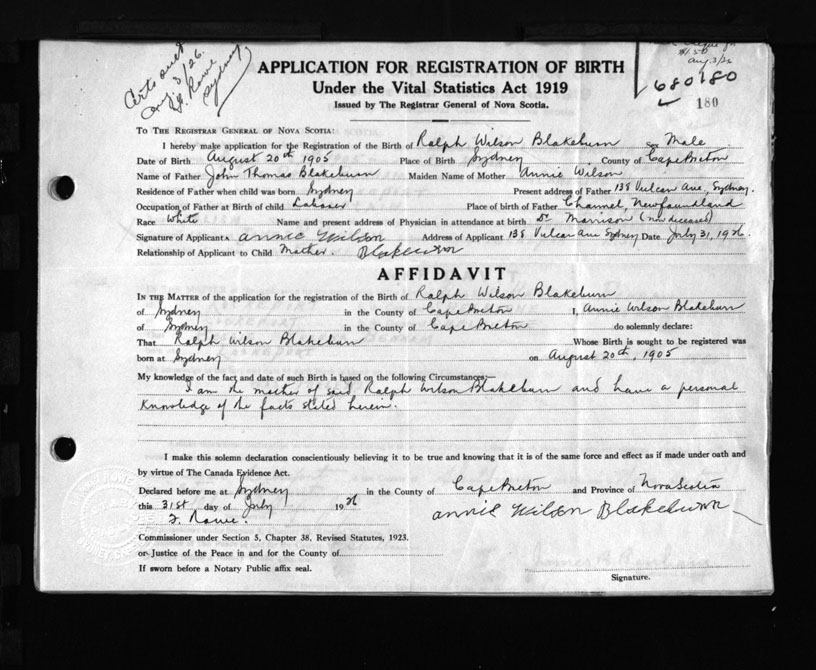 Certs sent
Aug 3/26.
Rowe
Sydney
Aug. 3/26
680180
180
APPLICATION FOR REGISTRATION OF BIRTH
Under the Vital Statistics Act 1919
Issued by The Registrar General of Nova Scotia.
TO THE REGISTRAR GENERAL OF NOVA SCOTIA:
I hereby make application for the Registration of the Birth of Ralph Wilson Blakeburn Sex Male
Date of Birth August 20th 1905 Place of Birth Sydney County of Cape Breton
Name of Father John Thomas Blakeburn Maiden Name of Mother Annie Wilson
Residence of Father when child was born Sydney Present address of Father 138 Vulcan Ave, Sydney.
Occupation of Father at Birth of child Laborer Place of birth of Father Channel, Newfoundland
Race White Name and present address of Physician in attendance at birth Dr. Morrison (now deceased)
Signature of Applicant Annie Wilson Address of Applicant 138 Vulcan Ave Sydney Date July 31, 1926.
Relationship of Applicant to Child Mother. Blakeburn
AFFIDAVIT
IN THE MATTER of the application for the registration of the Birth of Ralph Wilson Blakeburn
of Sydney in the County of Cape Breton I, Annie Wilson Blakeburn
of Sydney in the County of Cape Breton do solemnly declare:
That Ralph Wilson Blakeburn Whose Birth is sought to be registered was
born at Sydney on August 20th, 1905
My knowledge of the fact and date of such Birth is based on the following Circumstances:—
I am the mother of said Ralph Wilson Blakeburn and have a personal
knowledge of the facts stated herein.
I make this solemn declaration conscientiously believing it to be true and knowing that it is of the same force and effect as if made under oath and
by virtue of The Canada Evidence Act.
Declared before me at Sydney in the County of Cape Breton and Province of Nova Scotia
this 31st day of July 1926
F. Rowe. Annie Wilson Blakeburn
Commissioner under Section 5, Chapter 38, Revised Statutes, 1923.
or Justice of the Peace in and for the County of
If sworn before a Notary Public affix seal.
Signature.